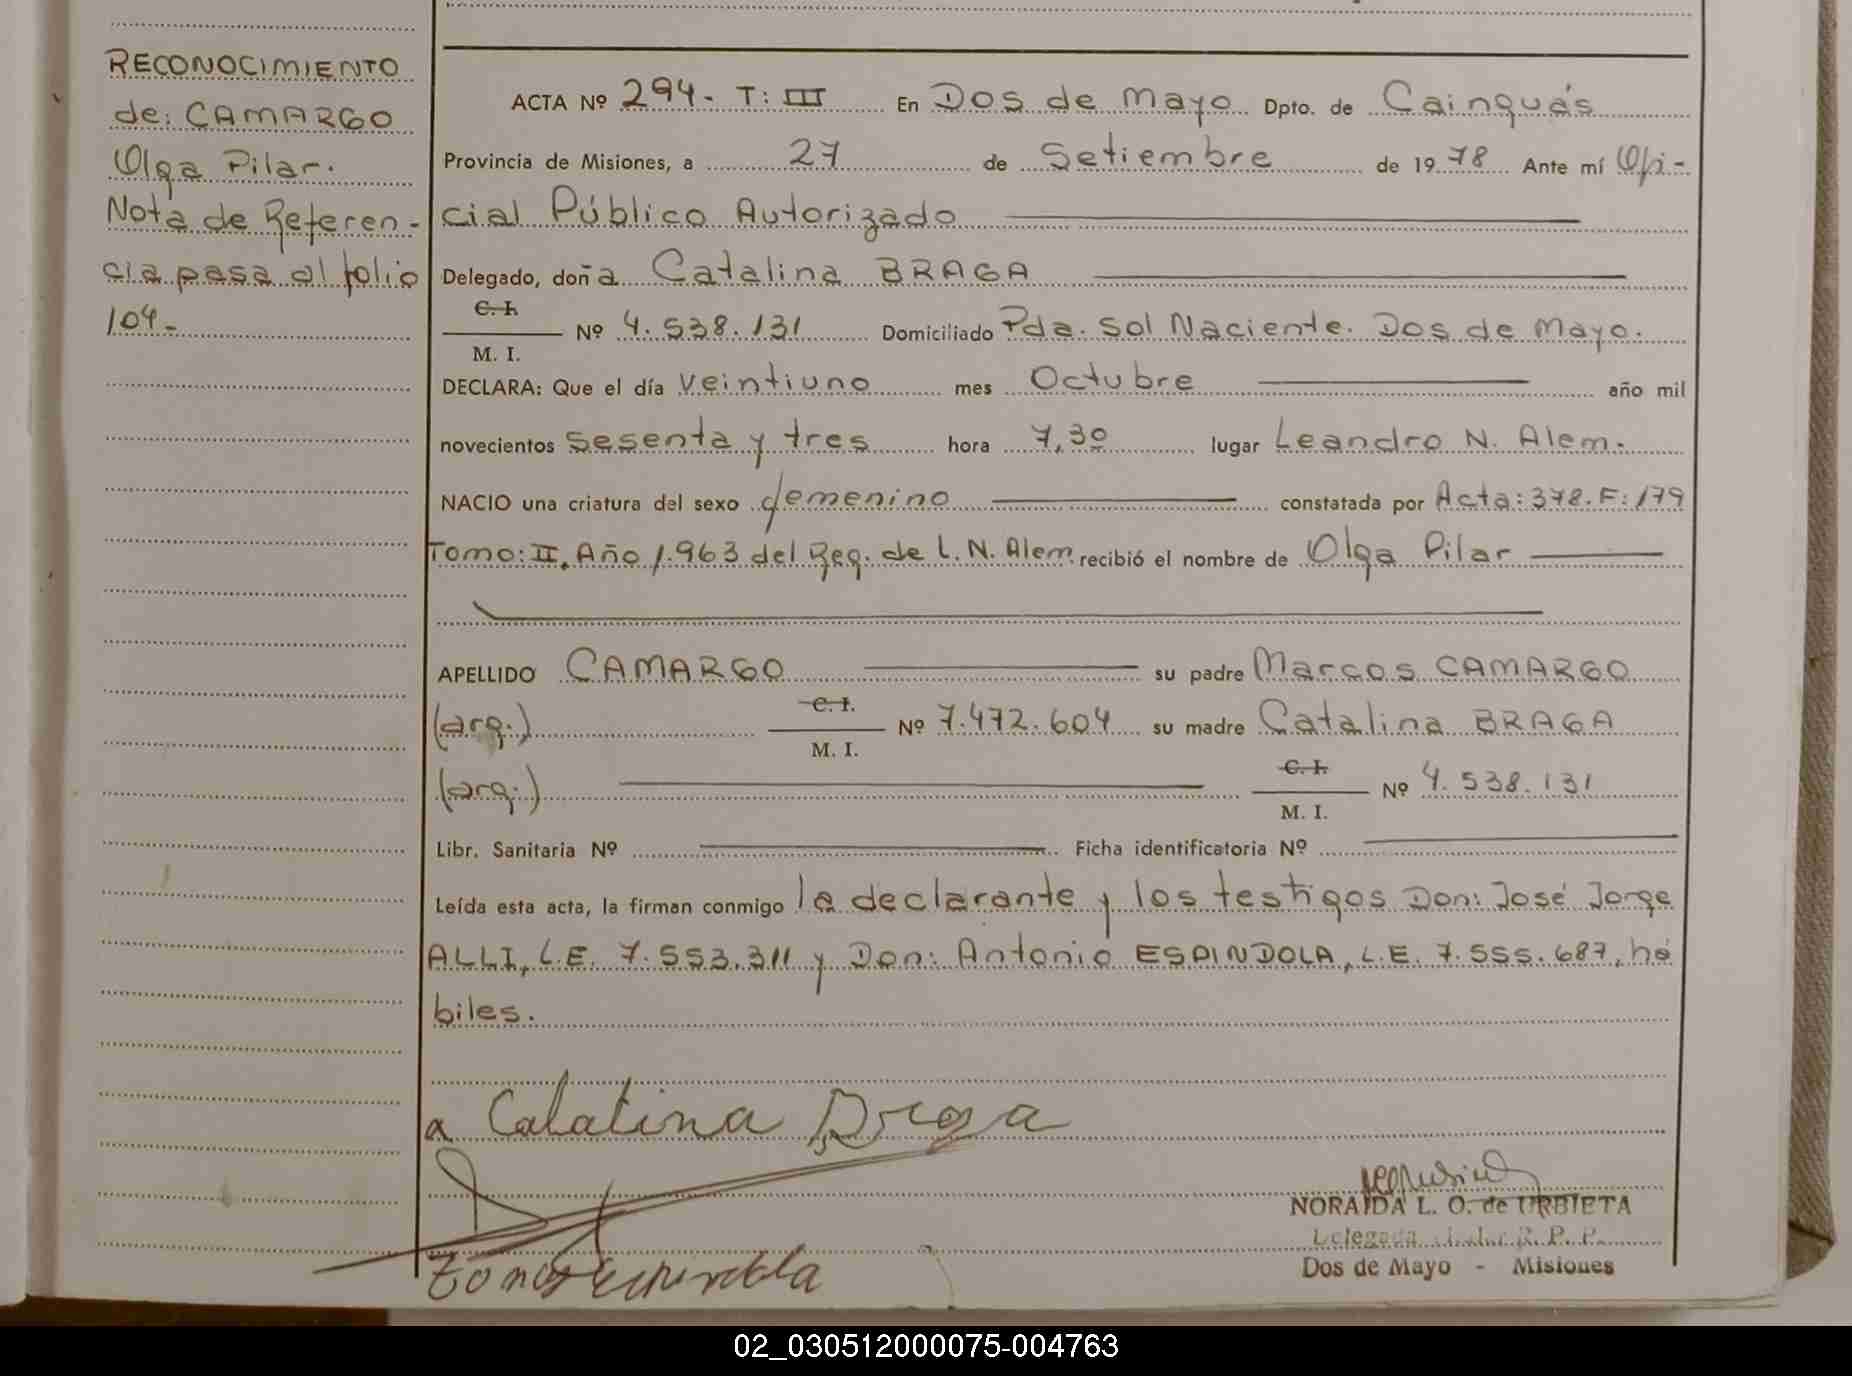 RECONOCIMIENTO
de: CAMARGO
Olga Pilar.
Nota de Referen-
cia pasa al folio
104-
ACTA Nº 294- T: III En Dos de Mayo Dpto. de Cainguás
Provincia de Misiones, a 27 de Setiembre de 1978 Ante mí Ofi-
cial Público Autorizado
Delegado, doña Catalina BRAGA
C. I.
Nº 4.538.131 Domiciliado Pda. Sol Naciente. Dos de Mayo.
M. I.
DECLARA: Que el día veintiuno mes Octubre año mil
novecientos sesenta y tres hora 7,30 lugar Leandro N. Alem.
NACIO una criatura del sexo femenino constatada por Acta: 378. F: 179
Tomo: II. Año 1.963 del Reg. de L. N. Alem. recibió el nombre de Olga Pilar
APELLIDO CAMARGO su padre Marcos CAMARGO
C. I.
(arg.) Nº 7.472.604 su madre Catalina BRAGA
M. I.
C. I.
(arg.) Nº 4.538.131
M. I.
Libr. Sanitaria Nº Ficha identificatoria Nº
Leída esta acta, la firman conmigo la declarante y los testigos Don: José Jorge
ALLI, L.E. 7.553.311 y Don: Antonio ESPINDOLA, L.E. 7.555.687, há
biles.
a Catalina Braga
NORAIDA L. O. de URBIETA
Delegada R. P. P.
Dos de Mayo - Misiones
02_030512000075-004763